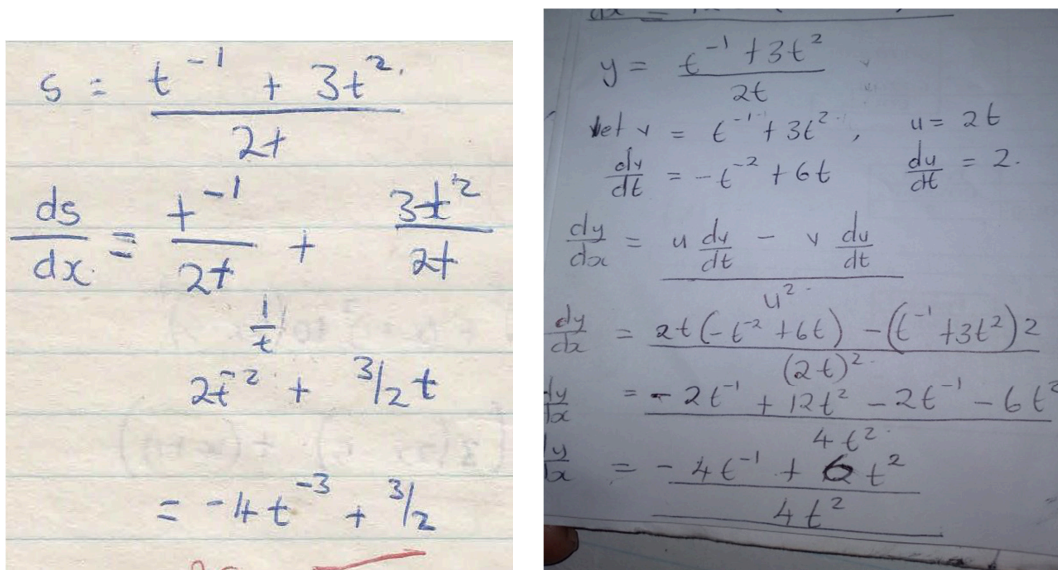 s = (t⁻¹ + 3t²) / 2t
ds/dx = t⁻¹/2t + 3t²/2t
1/t
2t⁻² + 3/2 t
= -4t⁻³ + 3/2
y = (t⁻¹ + 3t²) / 2t
let v = t⁻¹ + 3t², u = 2t
dv/dt = -t⁻² + 6t du/dt = 2.
dy/dx = (u dv/dt - v du/dt) / u²
dy/dx = (2t(-t⁻² + 6t) - (t⁻¹ + 3t²)2) / (2t)²
dy/dx = (-2t⁻¹ + 12t² - 2t⁻¹ - 6t²) / 4t²
dy/dx = (-4t⁻¹ + 6t²) / 4t²